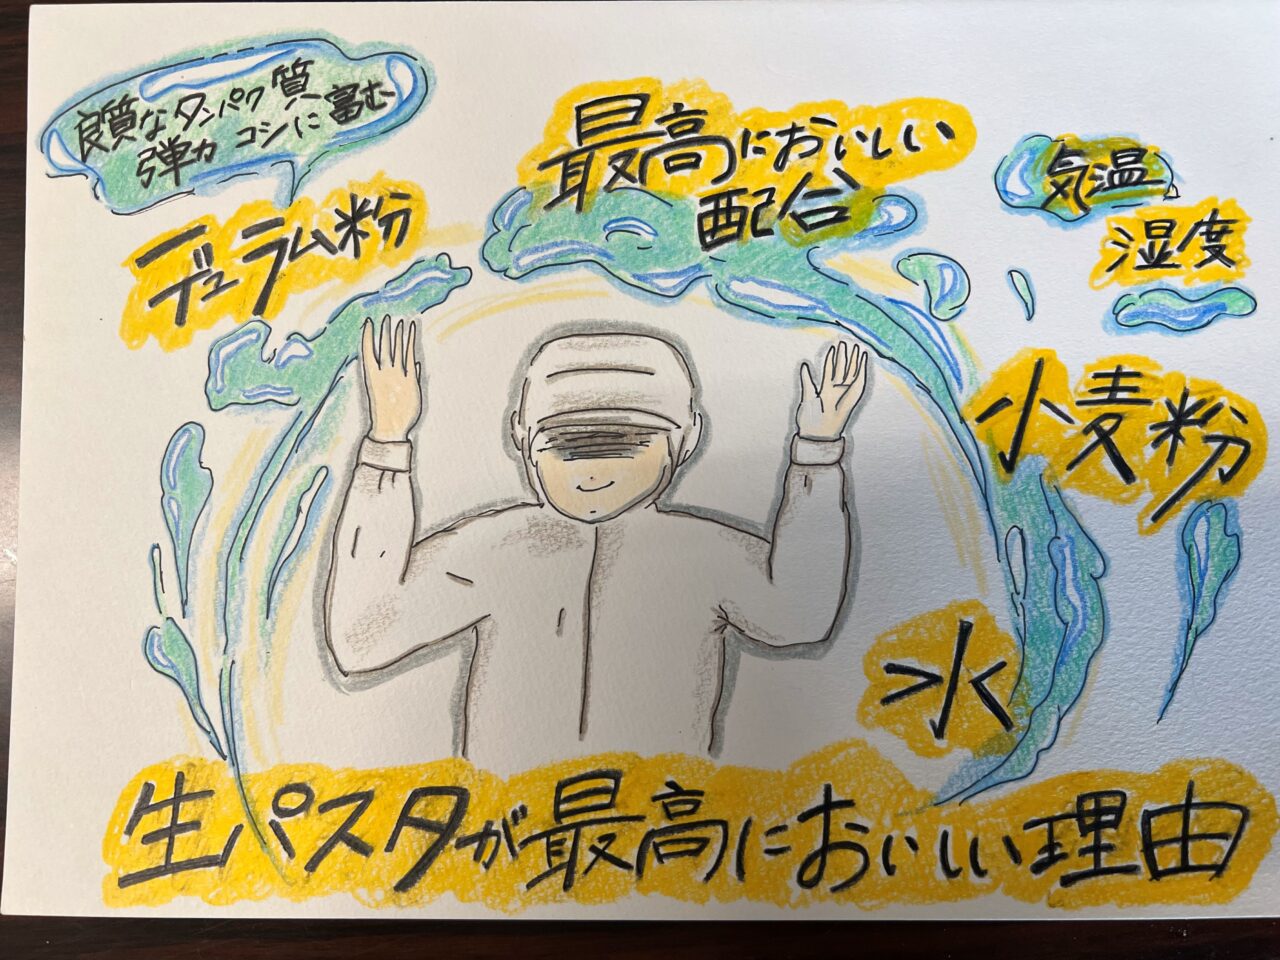 良質なタンパク質
弾力 コシに富む
デュラム粉
最高においしい
配合
気温
湿度
小麦粉
水
生パスタが最高においしい理由